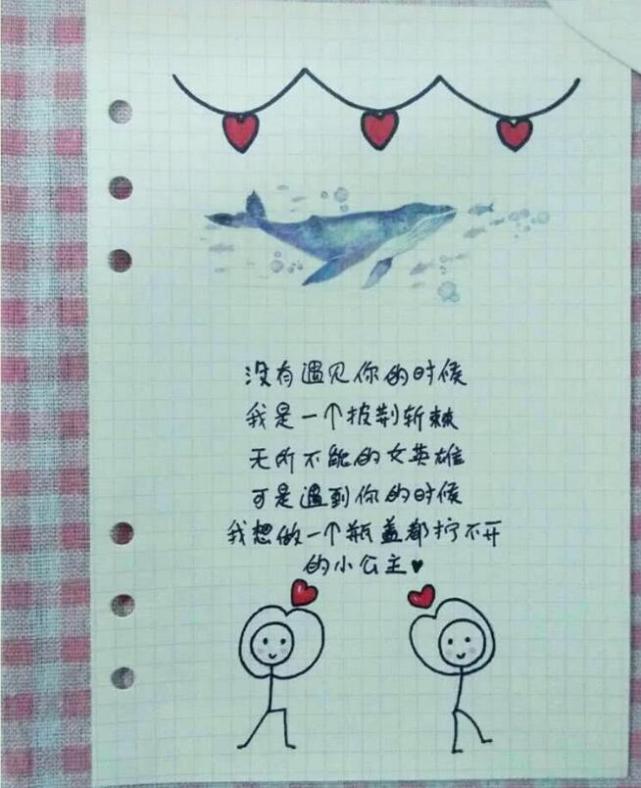 没有遇见你的时候
我是一个披荆斩棘
无所不能的女英雄
可是遇到你的时候
我想做一个瓶盖都拧不开
的小公主♥